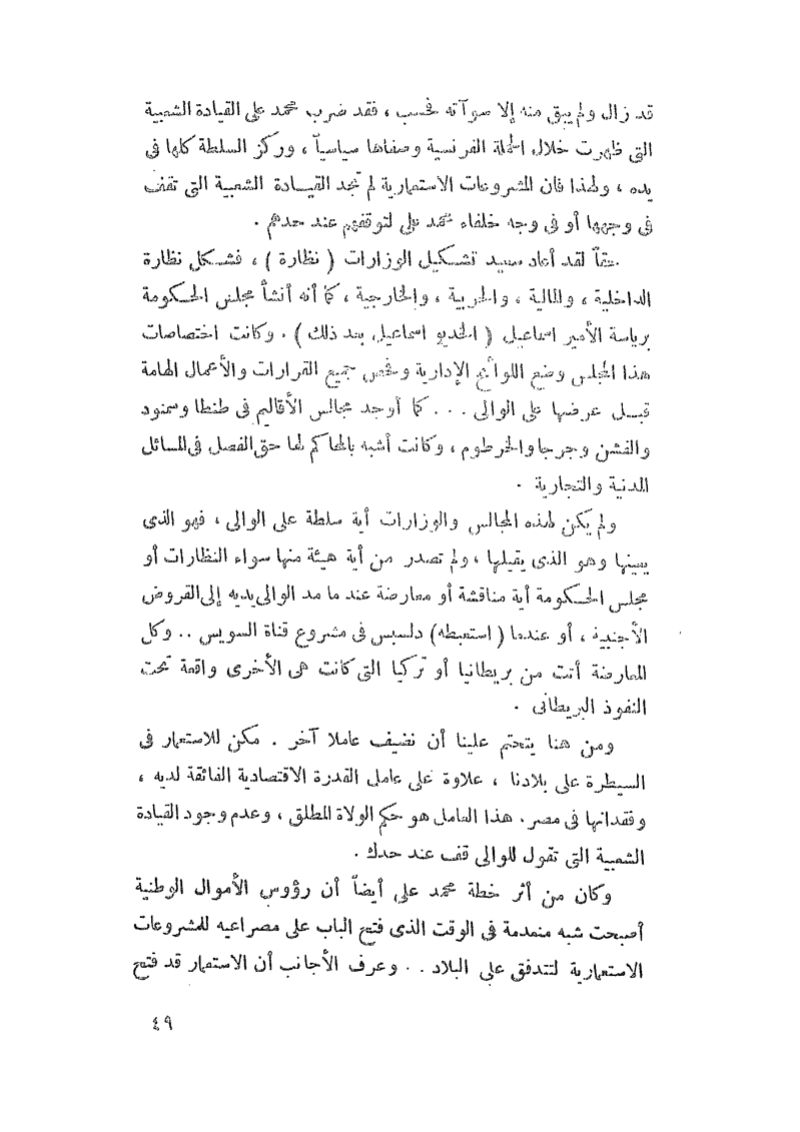 قد زال ولم يبق منه إلا سوآته فحسب ، فقد ضرب محمد على القيادة الشعبية
التى ظهرت خلال الحملة الفرنسية وصفاها سياسياً ، وركز السلطة كلها فى
يده ، ولهذا فان المشروعات الاستعمارية لم تجد القيـادة الشعبية التى تقف
فى وجهها أو فى وجه خلفاء محمد على لتوقفهم عند حدهم .
حقاً لقد أعاد سعيد تشكيل الوزارات ( نظارة ) ، فشـكل نظارة
الداخلية ، والمالية ، والحربية ، والخارجية ، كما أنه أنشأ مجلس الحكومة
برياسة الأمير اسماعيل ( الخديو اسماعيل بعد ذلك ) . وكانت اختصاصات
هذا المجلس وضع اللوائح الإدارية وفحص جميع القرارات والأعمال الهامة
قبـل عرضها على الوالى ... كما أوجد مجالس الأقاليم فى طنطا وسمنود
والفشن وجرجا والخرطوم ، وكانت أشبه بالمحاكم لها حق الفصل فى المسائل
المدنية والتجارية .
ولم يكن لهذه المجالس والوزارات أية سلطة على الوالى ، فهو الذى
يعينها وهو الذى يقيلها ، ولم تصدر من أية هيئة منها سواء النظارات أو
مجلس الحـكومة أية مناقشة أو معارضة عند ما مد الوالى يديه إلى القروض
الأجنبية ، أو عندما ( استعبطه) دلسبس فى مشروع قناة السويس .. وكل
المعارضة أتت من بريطانيا أو تركيا التى كانت هى الأخرى واقعة تحت
النفوذ البريطانى .
ومن هنا يتحتم علينا أن نضيف عاملا آخر . مكن للاستعمار فى
السيطرة على بلادنا ، علاوة على عامل القدرة الاقتصادية الفائقة لديه ،
وفقدانها فى مصر. هذا العامل هو حكم الولاة المطلق ، وعدم وجود القيادة
الشعبية التى تقول للوالى قف عند حدك .
وكان من أثر خطة محمد على أيضاً أن رؤوس الأموال الوطنية
أصبحت شبه منعدمة فى الوقت الذى فتح الباب على مصراعيه للمشروعات
الاستعمارية لتتدفق على البلاد .. وعرف الأجانب أن الاستعمار قد فتح
٤٩